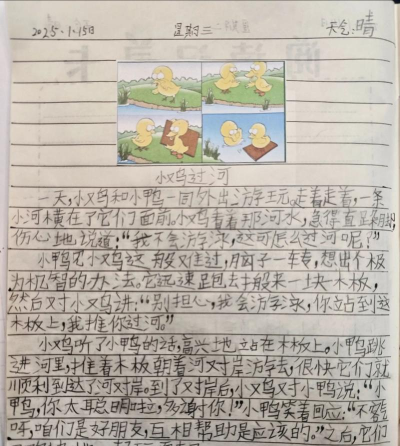 2025.1.15日 星期三 天气:晴
小鸡过河
一天,小鸡和小鸭一同外出游玩,走着走着,一条
小河横在了它们面前,小鸡看着那河水,急得直跺脚,
伤心地说道:“我不会游泳,这可怎么过河呢!”
小鸭见小鸡这般难过,脑子一转,想出个极
为机智的办法。它迅速跑去搬来一块木板,
然后对小鸡讲:“别担心,我会游泳,你站到这
木板上,我推你过河。”
小鸡听了小鸭的话,高兴地站在木板上。小鸭跳
进河里,推着木板朝着河对岸游去,很快它们就
顺利到达了河对岸。到了对岸后,小鸡对小鸭说:“小
鸭,你太聪明啦,多谢你!”小鸭笑着回应:“不客气
呀,咱们是好朋友,互相帮助是应该的。”之后,它们